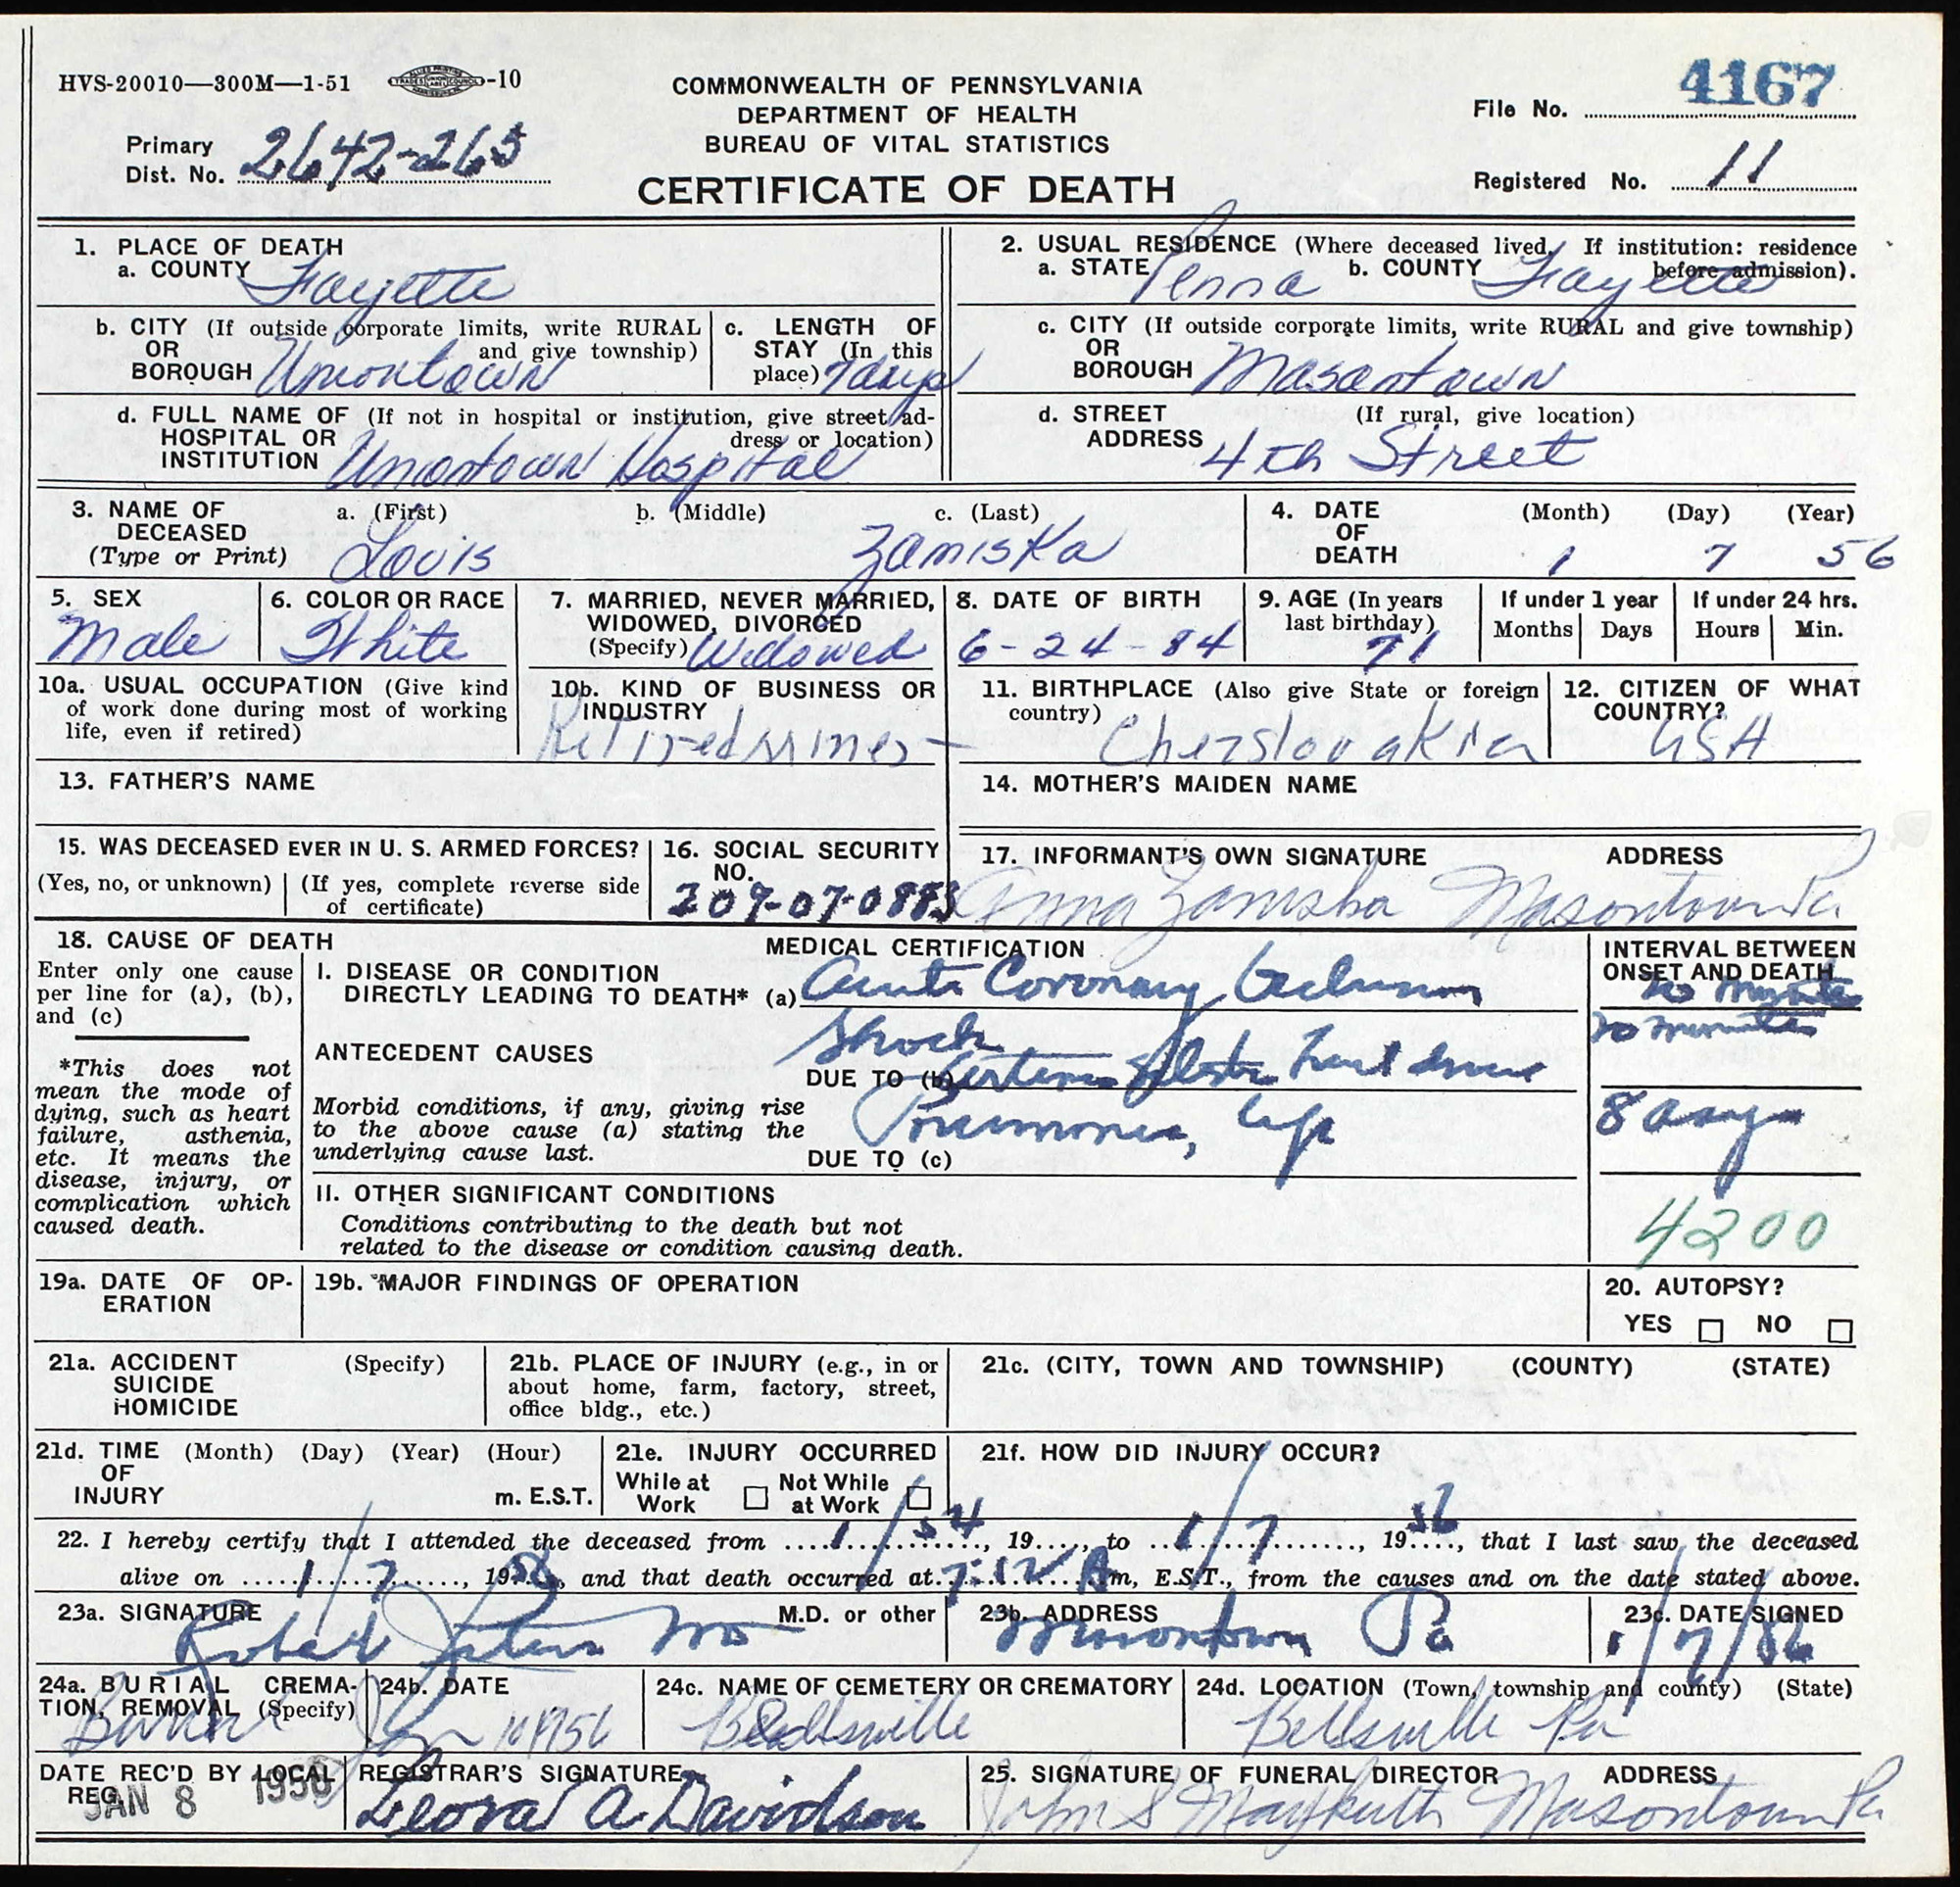 HVS-20010—300M—1-51 -10
COMMONWEALTH OF PENNSYLVANIA
DEPARTMENT OF HEALTH
BUREAU OF VITAL STATISTICS
CERTIFICATE OF DEATH
Primary
Dist. No. 2642-263
File No. 4167
Registered No. 11
1. PLACE OF DEATH
a. COUNTY Fayette
b. CITY (If outside corporate limits, write RURAL
OR and give township)
BOROUGH Uniontown
c. LENGTH OF
STAY (In this
place) 7 days
d. FULL NAME OF (If not in hospital or institution, give street ad-
HOSPITAL OR dress or location)
INSTITUTION Uniontown Hospital
2. USUAL RESIDENCE (Where deceased lived. If institution: residence
before admission).
a. STATE Penna b. COUNTY Fayette
c. CITY (If outside corporate limits, write RURAL and give township)
OR
BOROUGH Masontown
d. STREET (If rural, give location)
ADDRESS 4th Street
3. NAME OF a. (First) b. (Middle) c. (Last)
DECEASED
(Type or Print) Louis Zaniska
4. DATE (Month) (Day) (Year)
OF
DEATH 1 7 56
5. SEX
Male
6. COLOR OR RACE
White
7. MARRIED, NEVER MARRIED,
WIDOWED, DIVORCED
(Specify) Widowed
8. DATE OF BIRTH
6-24-84
9. AGE (In years
last birthday)
71
If under 1 year
Months Days
If under 24 hrs.
Hours Min.
10a. USUAL OCCUPATION (Give kind
of work done during most of working
life, even if retired)
10b. KIND OF BUSINESS OR
INDUSTRY
Retired
11. BIRTHPLACE (Also give State or foreign
country)
Cherslovakia
12. CITIZEN OF WHAT
COUNTRY?
USA
13. FATHER'S NAME
14. MOTHER'S MAIDEN NAME
15. WAS DECEASED EVER IN U. S. ARMED FORCES?
(Yes, no, or unknown) (If yes, complete reverse side
of certificate)
16. SOCIAL SECURITY
NO.
209-07-0883
17. INFORMANT'S OWN SIGNATURE ADDRESS
Anna Zaniska Masontown Pa
18. CAUSE OF DEATH
Enter only one cause
per line for (a), (b),
and (c)
*This does not
mean the mode of
dying, such as heart
failure, asthenia,
etc. It means the
disease, injury, or
complication which
caused death.
MEDICAL CERTIFICATION
I. DISEASE OR CONDITION
DIRECTLY LEADING TO DEATH* (a) Acute Coronary Occlusion
Shock
ANTECEDENT CAUSES
DUE TO (b) heart disease
Morbid conditions, if any, giving rise
to the above cause (a) stating the
underlying cause last.
Pneumonia,
DUE TO (c)
II. OTHER SIGNIFICANT CONDITIONS
Conditions contributing to the death but not
related to the disease or condition causing death.
INTERVAL BETWEEN
ONSET AND DEATH
20 minutes
20 minutes
8 days
4200
19a. DATE OF OP-
ERATION
19b. MAJOR FINDINGS OF OPERATION
20. AUTOPSY?
YES NO
21a. ACCIDENT (Specify)
SUICIDE
HOMICIDE
21b. PLACE OF INJURY (e.g., in or
about home, farm, factory, street,
office bldg., etc.)
21c. (CITY, TOWN AND TOWNSHIP) (COUNTY) (STATE)
21d. TIME (Month) (Day) (Year) (Hour)
OF
INJURY m. E.S.T.
21e. INJURY OCCURRED
While at Not While
Work at Work
21f. HOW DID INJURY OCCUR?
22. I hereby certify that I attended the deceased from 1/54, 19...., to 1/7, 1956, that I last saw the deceased
alive on 1/7, 1956, and that death occurred at 7:12 Am, E.S.T., from the causes and on the date stated above.
23a. SIGNATURE M.D. or other
Robert MD
23b. ADDRESS
Uniontown Pa
23c. DATE SIGNED
1/7/56
24a. BURIAL CREMA-
TION, REMOVAL (Specify)
Burial
24b. DATE
Jan 10 1956
24c. NAME OF CEMETERY OR CREMATORY
24d. LOCATION (Town, township and county) (State)
Bellsville Pa
DATE REC'D BY LOCAL
REG.
JAN 8 1956
REGISTRAR'S SIGNATURE
Leora A. Davidson
25. SIGNATURE OF FUNERAL DIRECTOR ADDRESS
John S Maykuth Masontown Pa